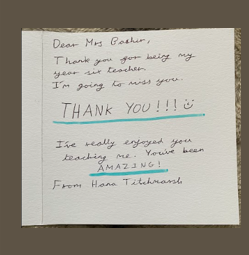 Dear Mrs Bashir,
Thank you for being my
year six teacher.
I'm going to miss you.
THANK YOU!!!
I've really enjoyed you
teaching me. You've been
AMAZING!
From Hana Titchmarsh